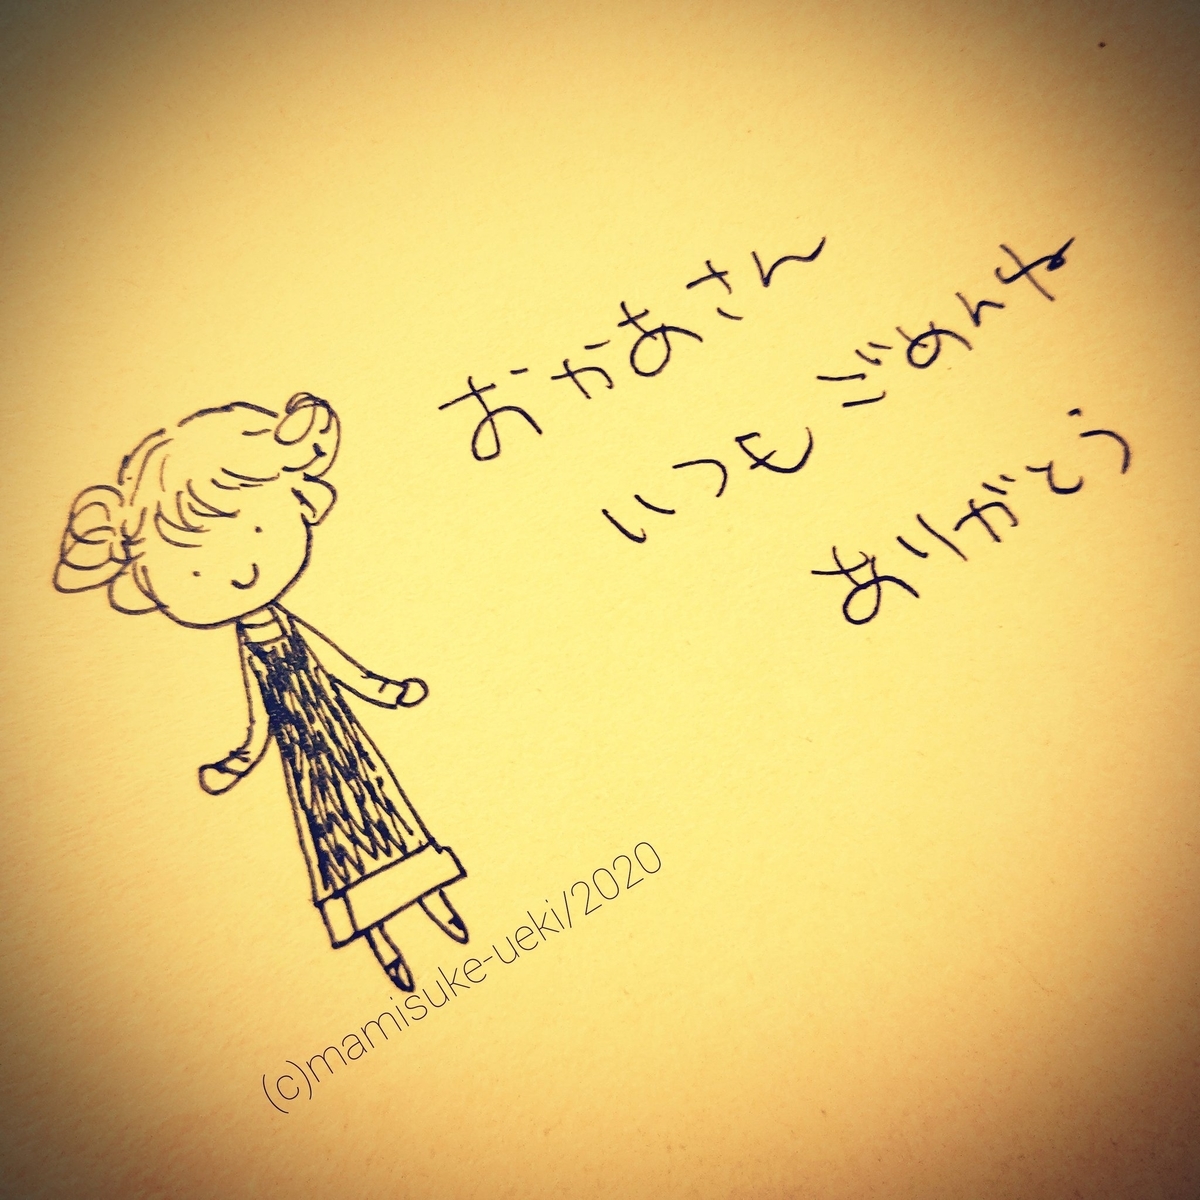 おかあさん
いつもごめんね
ありがとう
(c)mamisuke-ueki/2020